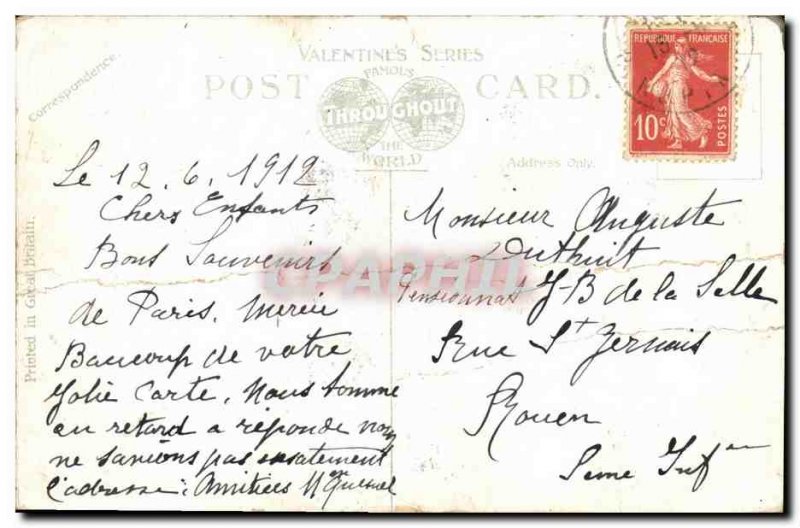 VALENTINE'S SERIES
POST CARD.
FAMOUS
THROUGHOUT
THE
WORLD
Correspondence.
Address Only.
Printed in Great Britain.
REPUBLIQUE FRANÇAISE
10c
POSTES
CPAPHIL
Le 12. 6. 1912
Chers Enfants
Bons Souvenirs
de Paris. Mercie
Baucoup de votre
Jolie Carte. Nous Somme
au retard a réponde nous
ne savions pas ensatement
l'adresse: Amitiées
Monsieur Auguste
Duthuit
Pensionnat J-B de la Salle
Rue St Gervais
Rouen
Seine Infre